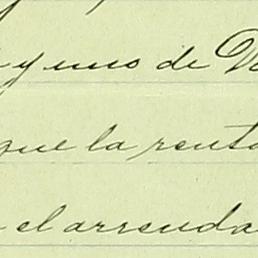 y uno de
que la renta
el arrenda